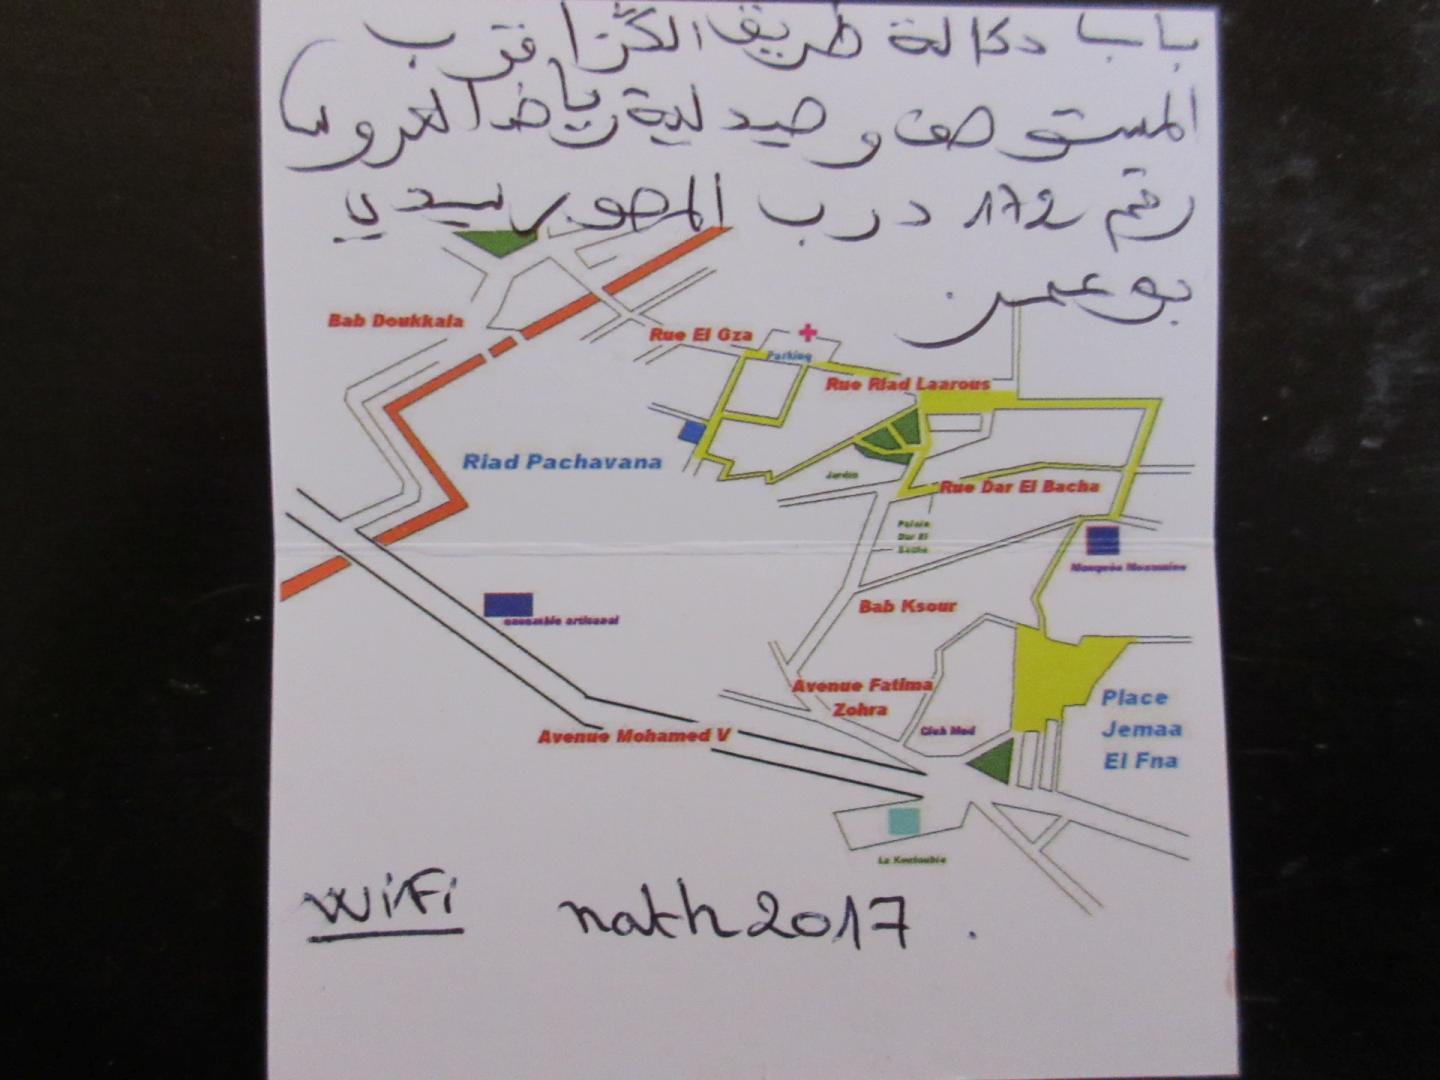 باب دكالة طريق الݣزا قرب
المستوصف وصيدلية رياض العروس
رقم 172 درب سيدي
بو عمر.
Bab Doukkala
Rue El Gza
Parking
Rue Riad Laarous
Riad Pachavana
Jardin
Rue Dar El Bacha
Palais
Dar El
Bacha
Mosquée Mouassine
ensemble artisanal
Bab Ksour
Avenue Fatima
Zohra
Avenue Mohamed V
Club Med
Place
Jemaa
El Fna
La Koutoubia
WiFi nath2017.